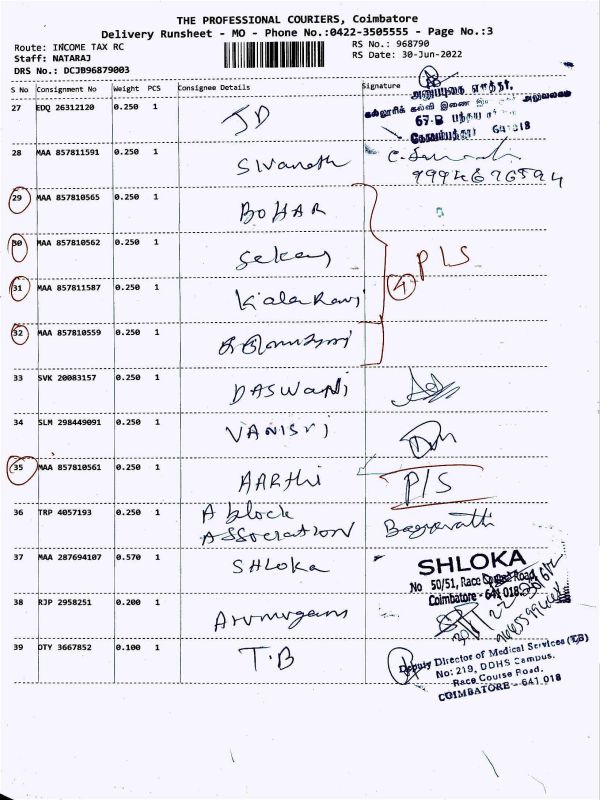 THE PROFESSIONAL COURIERS, Coimbatore
Delivery Runsheet - MO - Phone No.:0422-3505555 - Page No.:3
Route: INCOME TAX RC
RS No.: 968790
Staff: NATARAJ
RS Date: 30-Jun-2022
DRS No.: DCJB96879003
S No Consignment No Weight PCS Consignee Details Signature
27 EDQ 26312120 0.250 1 JD
67-B
641018
28 MAA 857811591 0.250 1 Sivanath
29 MAA 857810565 0.250 1 BOHAR
30 MAA 857810562 0.250 1 Sekar
4 P/S
31 MAA 857811587 0.250 1 Kala Ravi
32 MAA 857810559 0.250 1
33 SVK 20083157 0.250 1 DASWANI
34 SLM 298449091 0.250 1 VANISRI
35 MAA 857810561 0.250 1 AARthi P/S
36 TRP 4057193 0.250 1 A block
Association
37 MAA 287694107 0.570 1 SHLoka
SHLOKA
No 50/51, Race Course Road,
Coimbatore - 641 018.
38 RJP 2958251 0.200 1 Arumugam
39 OTY 3667852 0.100 1 T.B
Deputy Director of Medical Services (TB)
No: 219, DDHS Campus.
Race Course Road.
COIMBATORE - 641 018